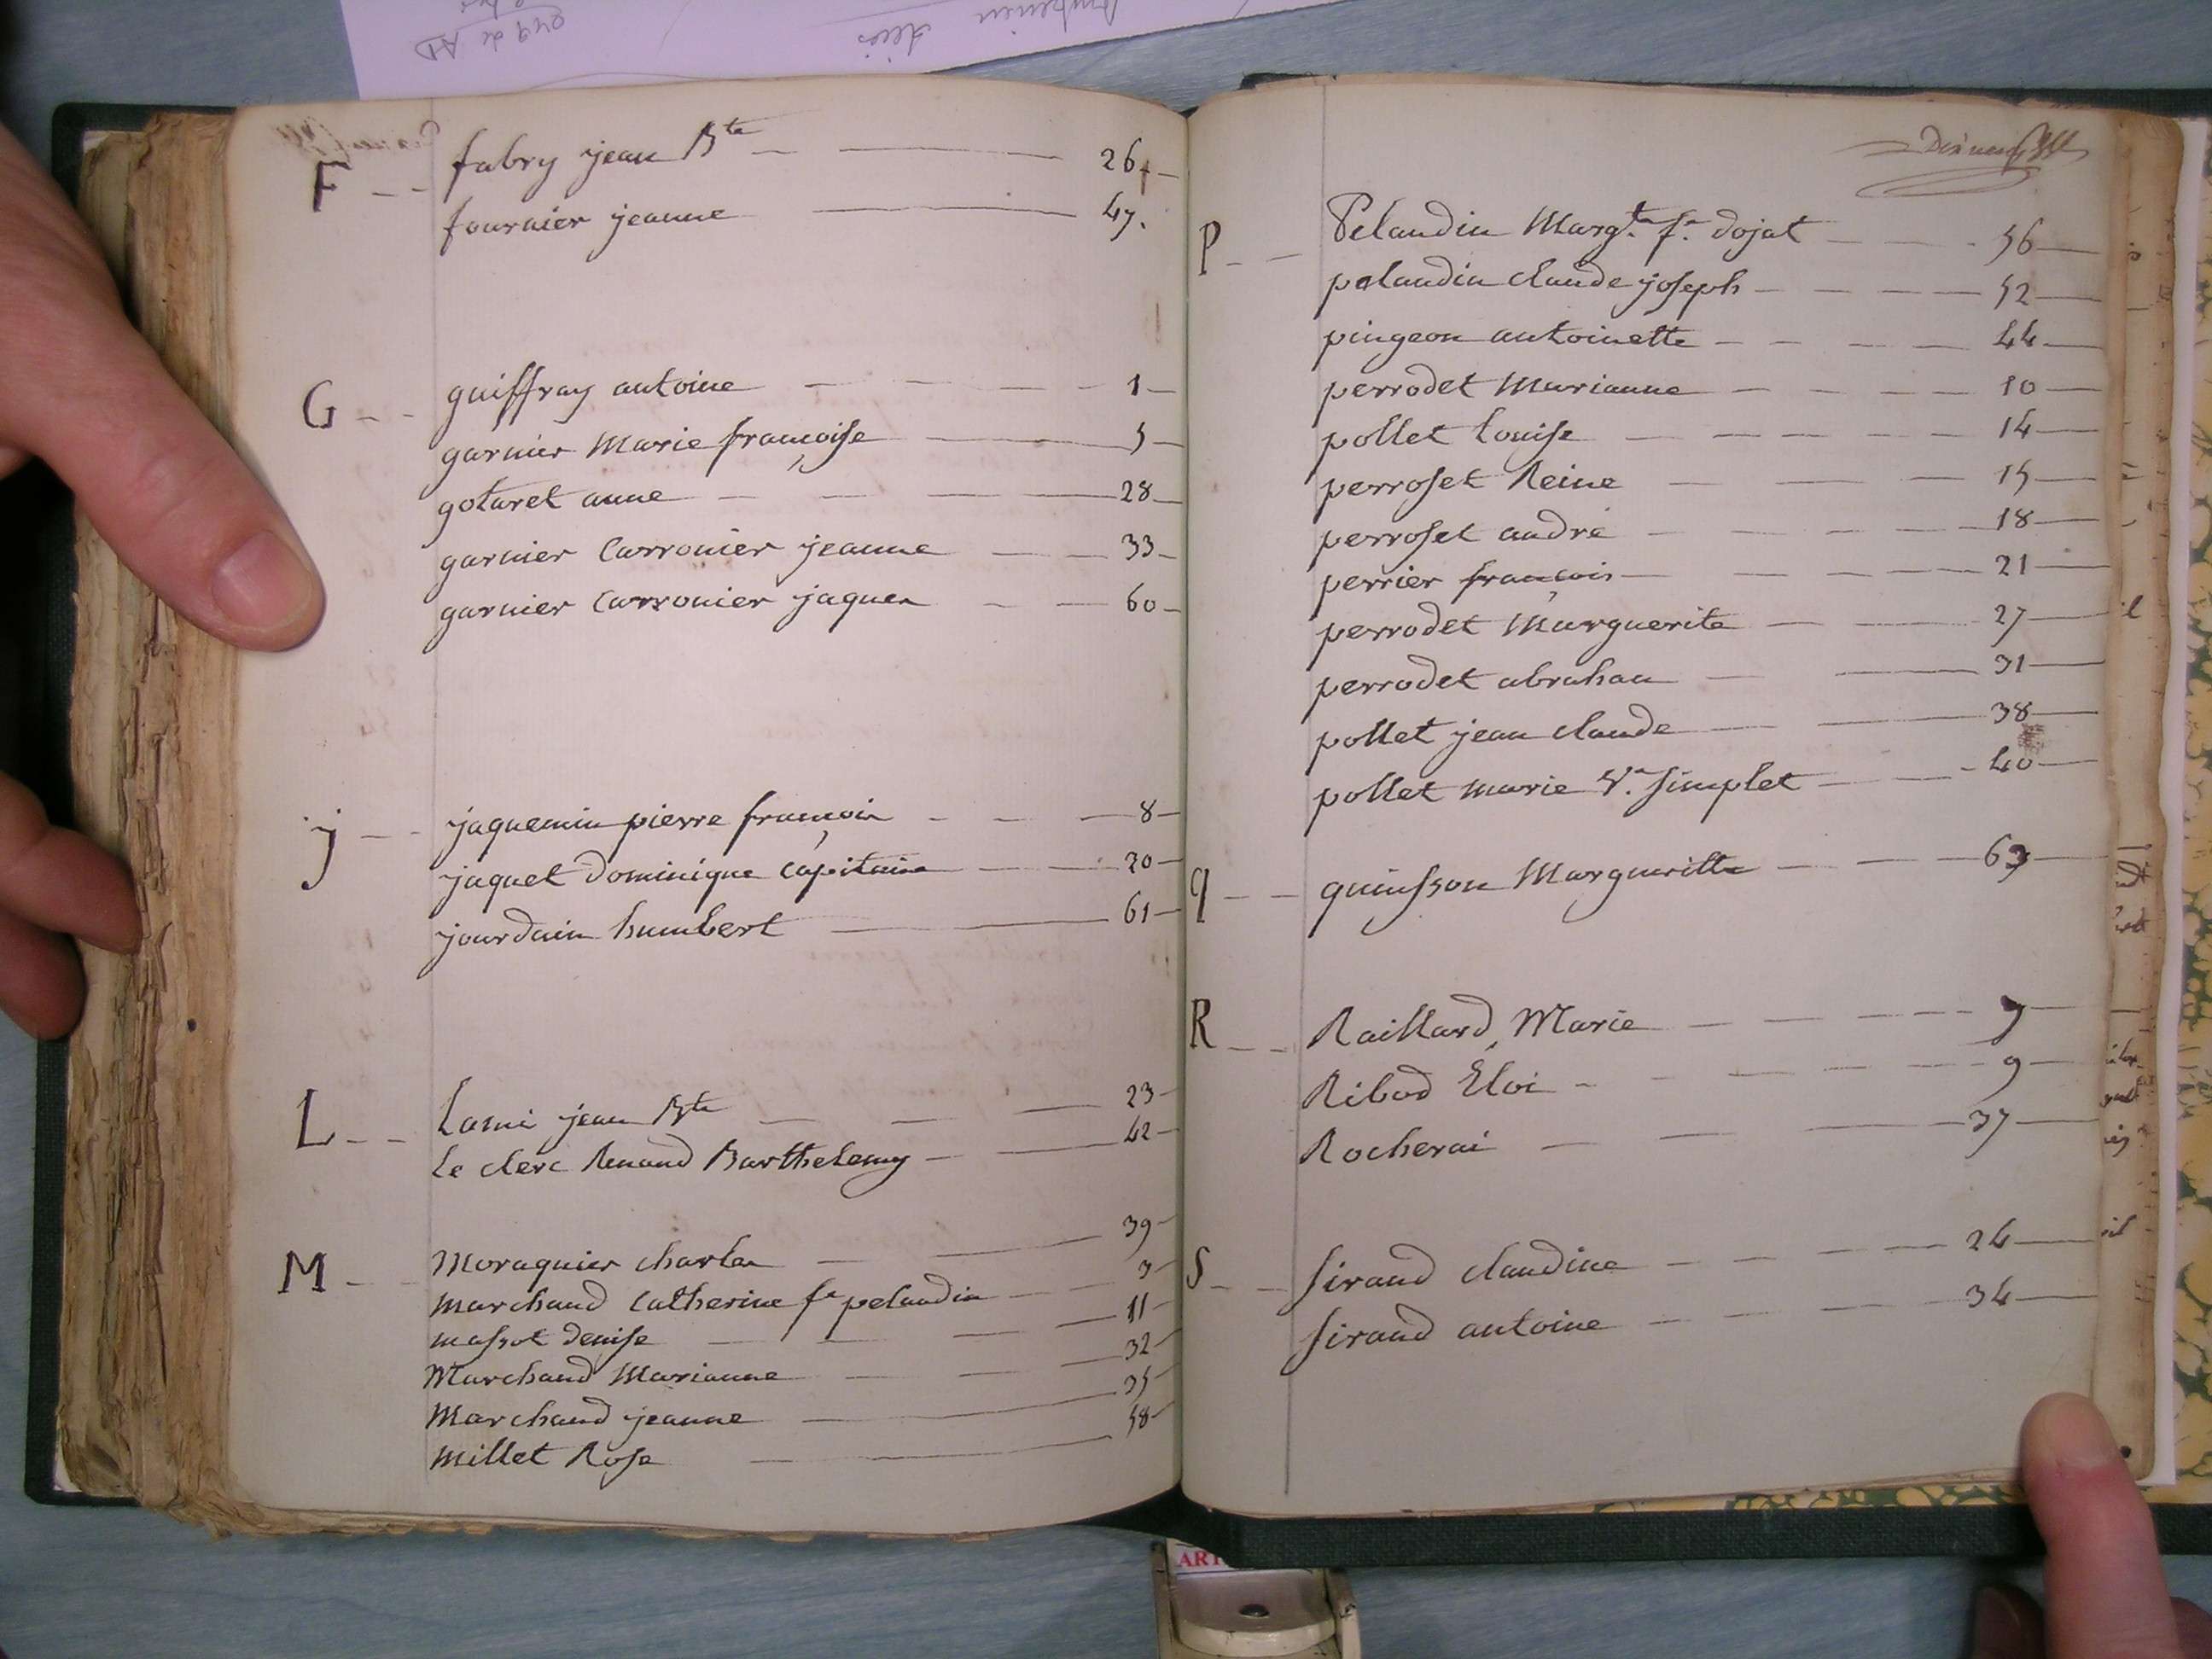 F -- fabry jean Bte 26
fournier jeanne 47.
G -- guiffray antoine 1
garnier Marie françoise 5
gotaret anne 28
garnier Carronier jeanne 33
garnier Carronier jaques 60
j -- jaquemin pierre françois 8
jaquet Dominique Capitaine 20
jourdain humbert 61
L -- Lami jean Bte 23
Le clerc Renaud Barthelemy 42
M -- Moraquier charles 39
marchand Catherine fe pelandin 3
massot Denise 11
Marchand Marianne 32
Marchand jeanne 35
millet Rose 58
P -- Pelandin Margte. fe. Dojat 56
pelandin claude joseph 52
pingeon antoinette 44
perrodet Marianne 10
pollet Louise 14
perroset Reine 15
perroset andré 18
perrier françois 21
perrodet Marguerite 27
perrodet abraham 31
pollet jean claude 38
pollet marie Ve. Simplet 40
q -- quinsson Margueritte 63
R -- Raillard, Marie 7
Ribod Eloi 9
Rocherai 37
S -- Sirand claudine 24
Sirand antoine 34
ART